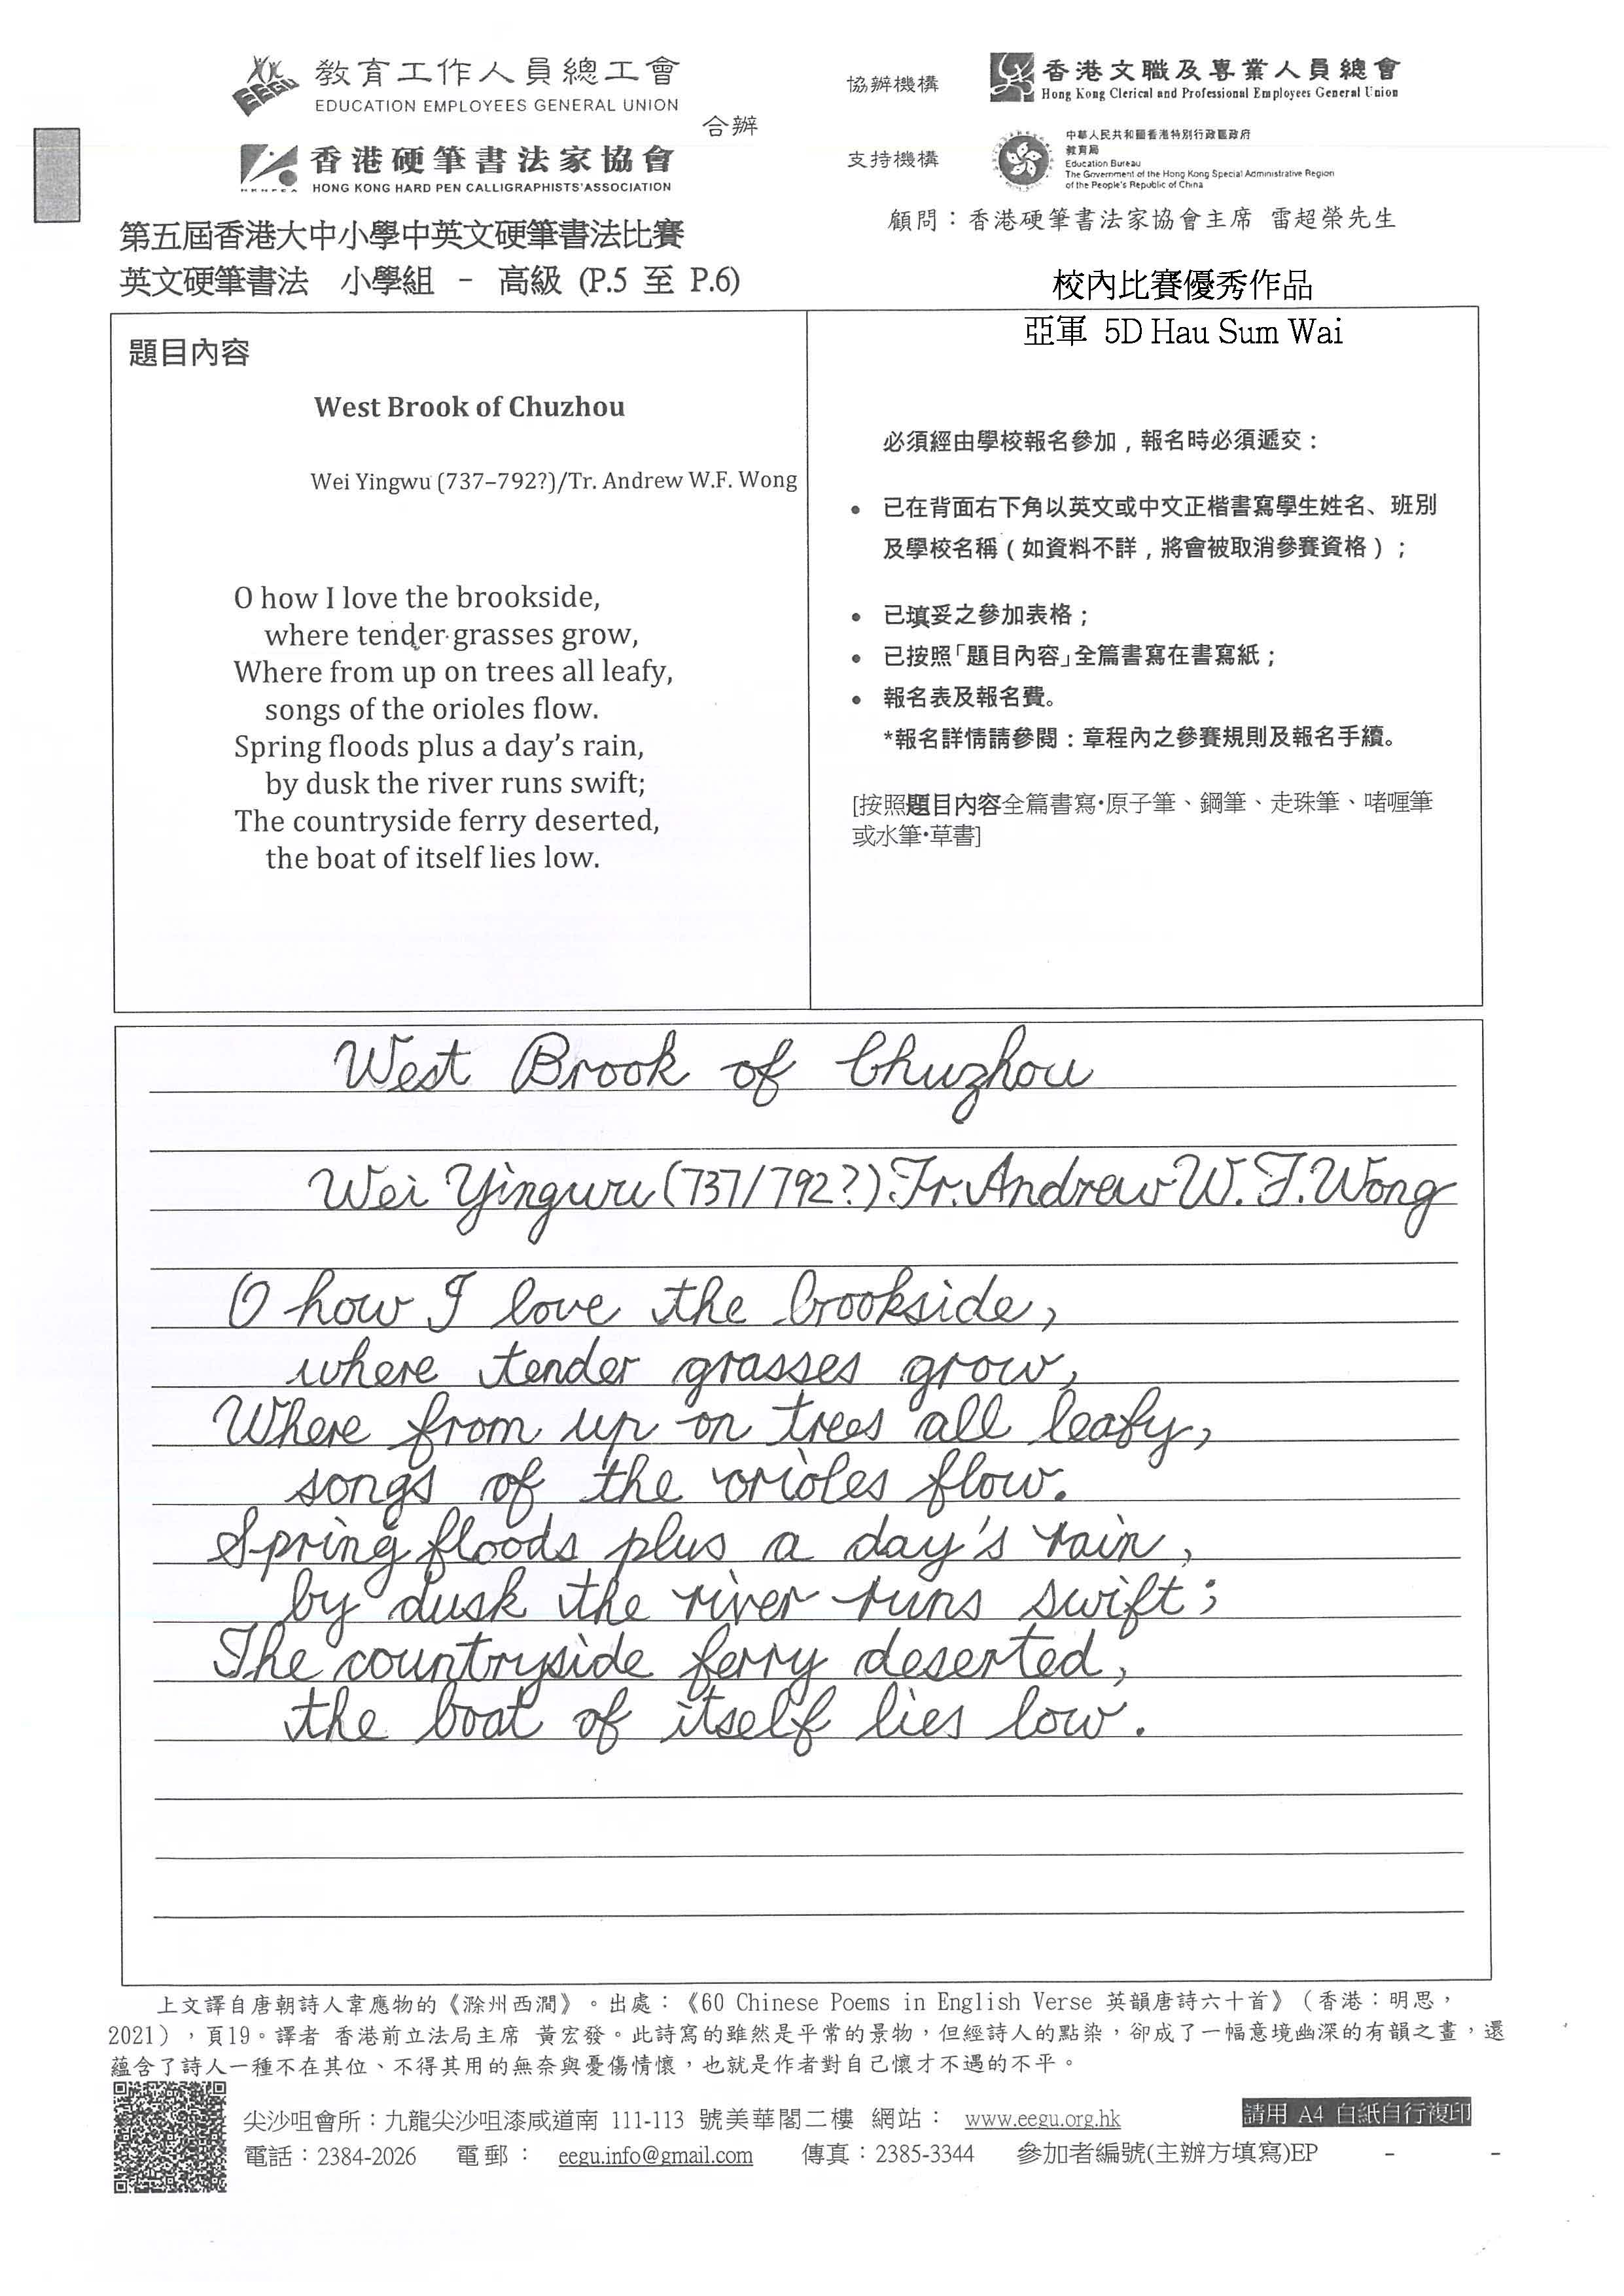 教育工作人員總工會
EDUCATION EMPLOYEES GENERAL UNION
合辦
香港硬筆書法家協會
HONG KONG HARD PEN CALLIGRAPHISTS'ASSOCIATION
協辦機構
香港文職及專業人員總會
Hong Kong Clerical and Professional Employees General Union
支持機構
中華人民共和國香港特別行政區政府
教育局
Education Bureau
The Government of the Hong Kong Special Administrative Region
of the People's Republic of China
顧問：香港硬筆書法家協會主席 雷超榮先生
第五屆香港大中小學中英文硬筆書法比賽
英文硬筆書法 小學組 - 高級 (P.5 至 P.6)
校內比賽優秀作品
亞軍 5D Hau Sum Wai
題目內容
West Brook of Chuzhou
Wei Yingwu (737–792?)/Tr. Andrew W.F. Wong
O how I love the brookside,
where tender grasses grow,
Where from up on trees all leafy,
songs of the orioles flow.
Spring floods plus a day's rain,
by dusk the river runs swift;
The countryside ferry deserted,
the boat of itself lies low.
必須經由學校報名參加，報名時必須遞交：
• 已在背面右下角以英文或中文正楷書寫學生姓名、班別
及學校名稱（如資料不詳，將會被取消參賽資格）；
• 已填妥之參加表格；
• 已按照「題目內容」全篇書寫在書寫紙；
• 報名表及報名費。
*報名詳情請參閱：章程內之參賽規則及報名手續。
[按照題目內容全篇書寫•原子筆、鋼筆、走珠筆、啫喱筆
或水筆•草書]
West Brook of Chuzhou
Wei Yingwu (737/792?).Tr.Andrew W.F.Wong
O how I love the brookside,
where tender grasses grow,
Where from up on trees all leafy,
songs of the orioles flow.
Spring floods plus a day's rain,
by dusk the river runs swift;
The countryside ferry deserted,
the boat of itself lies low.
上文譯自唐朝詩人韋應物的《滁州西澗》。出處：《60 Chinese Poems in English Verse 英韻唐詩六十首》（香港：明思，
2021），頁19。譯者 香港前立法局主席 黃宏發。此詩寫的雖然是平常的景物，但經詩人的點染，卻成了一幅意境幽深的有韻之畫，還
蘊含了詩人一種不在其位、不得其用的無奈與憂傷情懷，也就是作者對自己懷才不遇的不平。
尖沙咀會所：九龍尖沙咀漆咸道南 111-113 號美華閣二樓 網站： www.eegu.org.hk
請用 A4 白紙自行複印
電話：2384-2026 電郵： eegu.info@gmail.com 傳真：2385-3344 參加者編號(主辦方填寫)EP - -